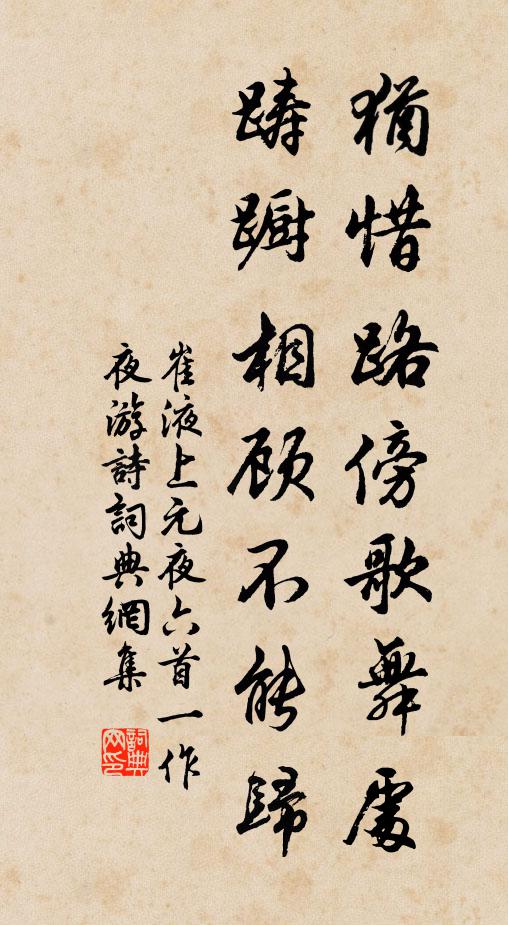 猶惜路傍歌舞處
躊躕相顧不能歸
崔液上元夜六首一作
夜游詩詞典網集
詞典網印